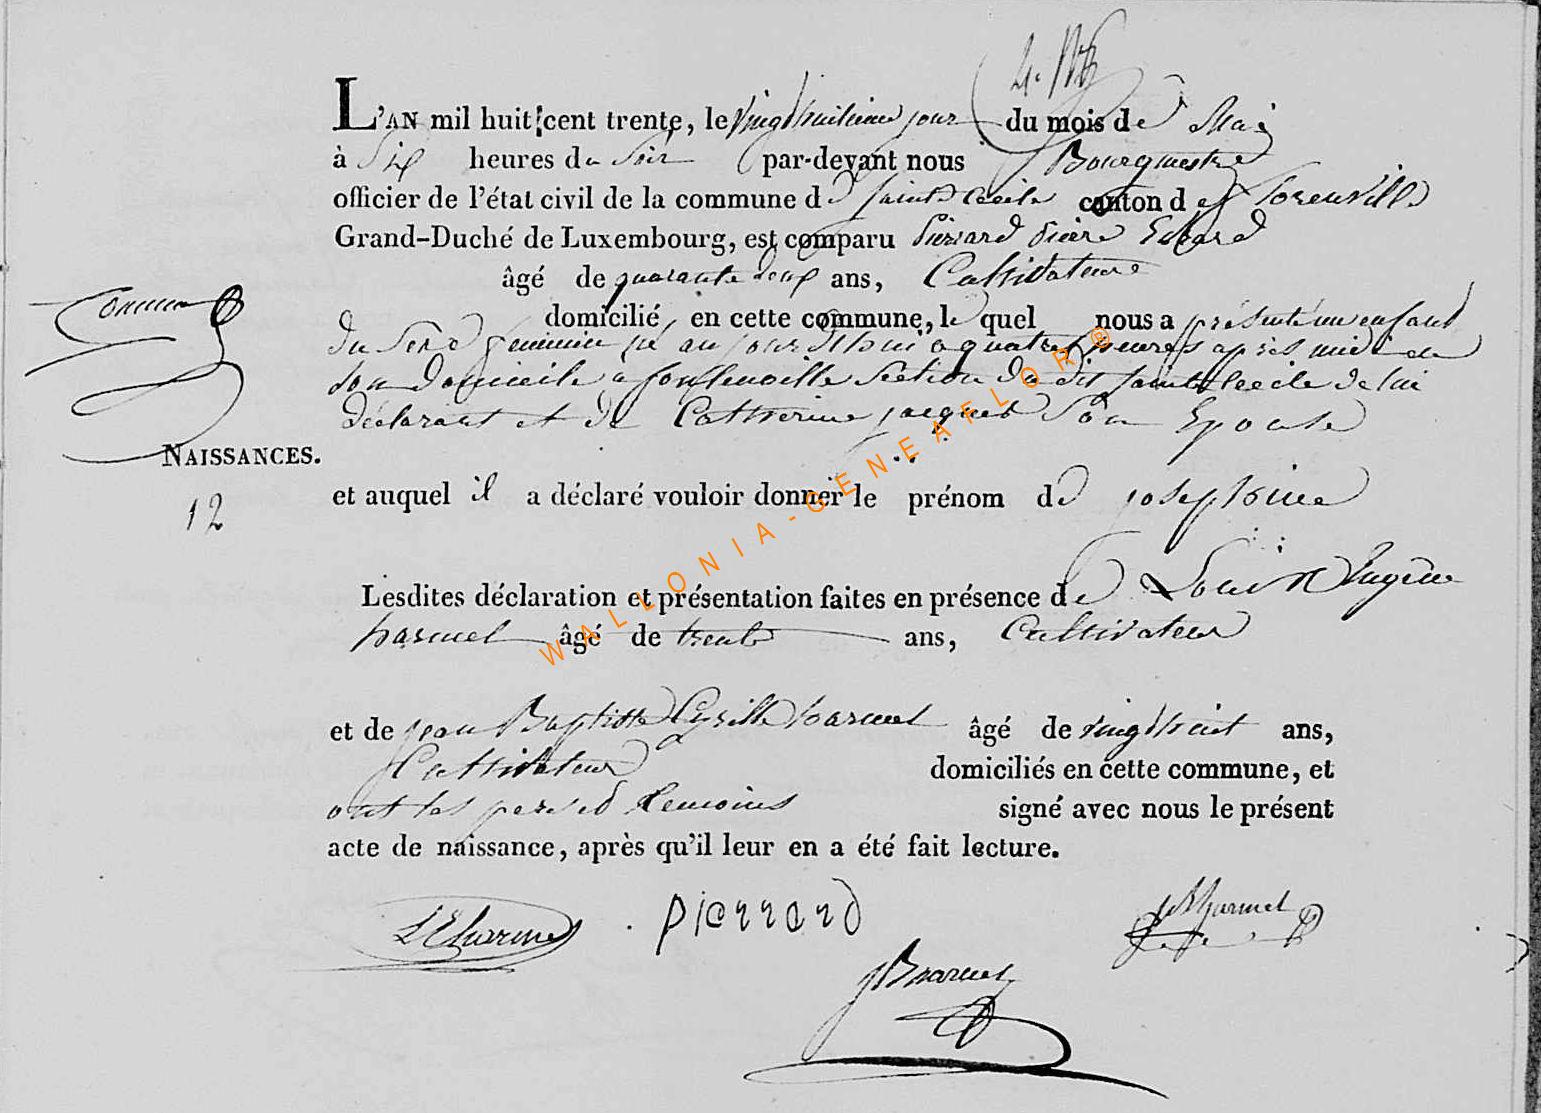 L'AN mil huit cent trente, le vingthuitieme jour du mois de Mai
à Six heures du Soir par-devant nous Bourgmestre
officier de l'état civil de la commune de Sainte Cecile canton de florenville
Grand-Duché de Luxembourg, est comparu Pierrard Pierre
âgé de quarante deux ans, Cultivateur
domicilié en cette commune, le quel nous a présenté un enfant
du Sexe feminin né au jourd'hui a quatre heures après midi de
Son Domicile a fontenoille Section du dit Sainte Cecile de lui
déclarant et de Catherine jacquet Son Epouse
NAISSANCES.
12
et auquel il a déclaré vouloir donner le prénom de josephine
Lesdites déclaration et présentation faites en présence de Louis Eugène
harmel âgé de trente ans, Cultivateur
et de jean Baptiste Cyrille harmel âgé de vingthuit ans,
Cultivateur domiciliés en cette commune, et
ont les pere et temoins signé avec nous le présent
acte de naissance, après qu'il leur en a été fait lecture.
LEharmel pierrard
JBharmel
WALLONIA-GENEAFLOR®